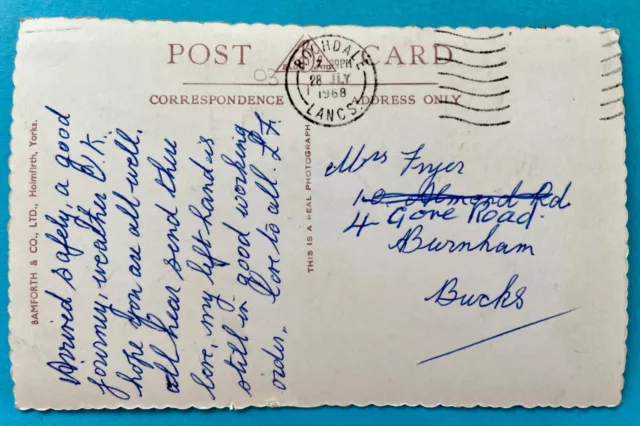 POST CARD
CORRESPONDENCE ADDRESS ONLY
ROCHDALE
28 JLY
1968
LANCS.
03
BAMFORTH & CO., LTD., Holmfirth, Yorks.
THIS IS A REAL PHOTOGRAPH
Arrived safely, a good
journey, weather O.K.
hope you are all well.
all hear send there
love, my left-hand is
still in good working
order. love to all. L.F.
Mrs Fryer
10 Almond Rd
4 Gore Road.
Burnham
Bucks